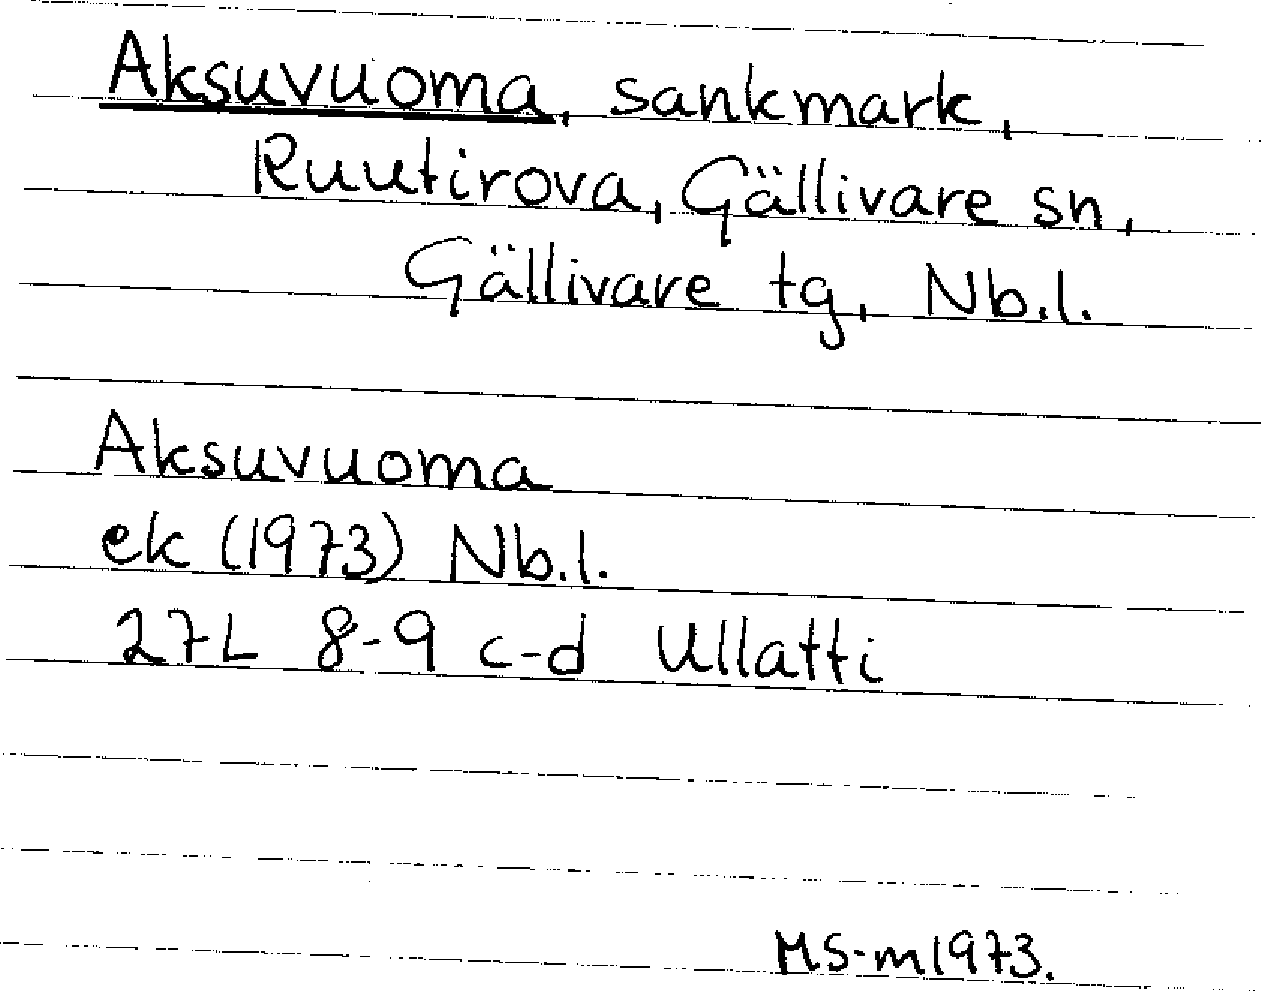 Aksuvuoma, sankmark,
Ruutirova, Gällivare sn,
Gällivare tg, Nb.l.
Aksuvuoma
ek (1973) Nb.l.
27L 8-9 c-d Ullatti
MS-m1973.